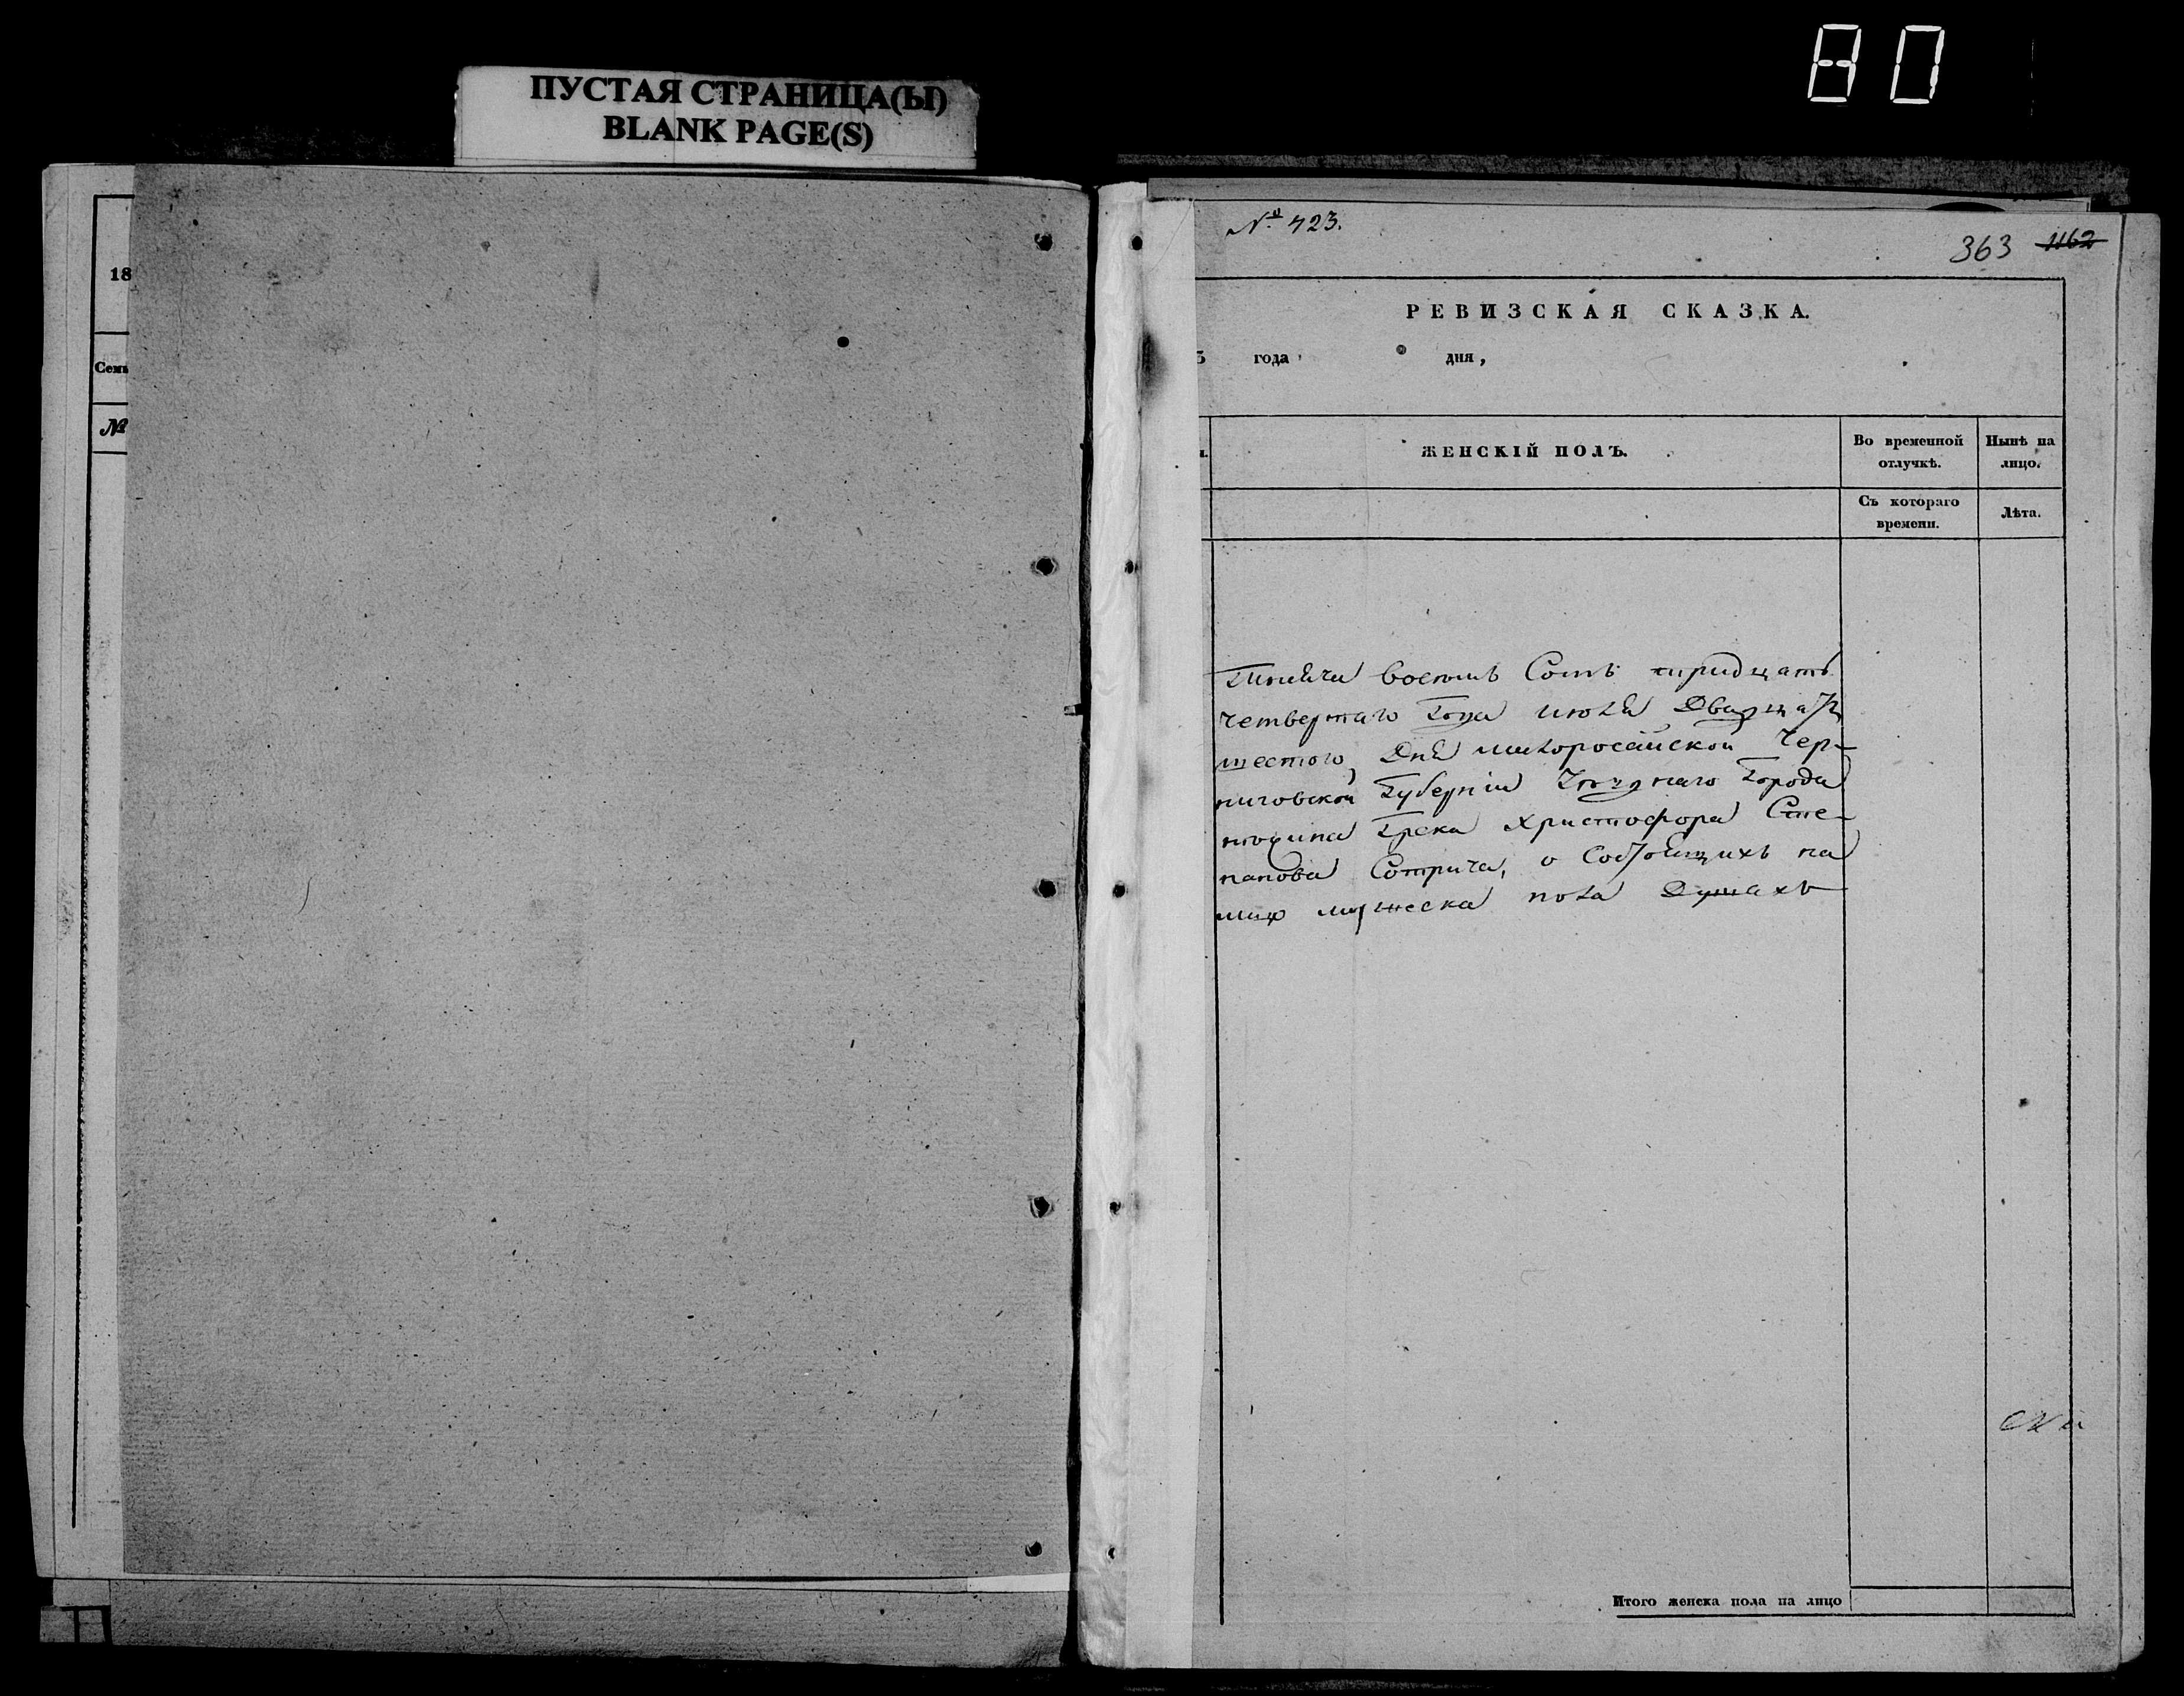 80
ПУСТАЯ СТРАНИЦА(Ы)
BLANK PAGE(S)
18
Семь
№
№ 423.
363 1162
РЕВИЗСКАЯ СКАЗКА.
5 года дня,
ЖЕНСКІЙ ПОЛЪ.
Во временной отлучкѣ.
Нынѣ на лицо.
Съ котораго времени.
Лѣта.
Тысяча восемъ Сотъ тридцать
четвертаго Года июля Двадцать
шестого, Дня малоросійской Чер-
ниговской Губерніи Уезднаго Города
нежина Грека Христофора Сте-
панова Сотрича, о Состоящихъ на
лицо мужеска пола Душахъ
Итого женска пола на лицо